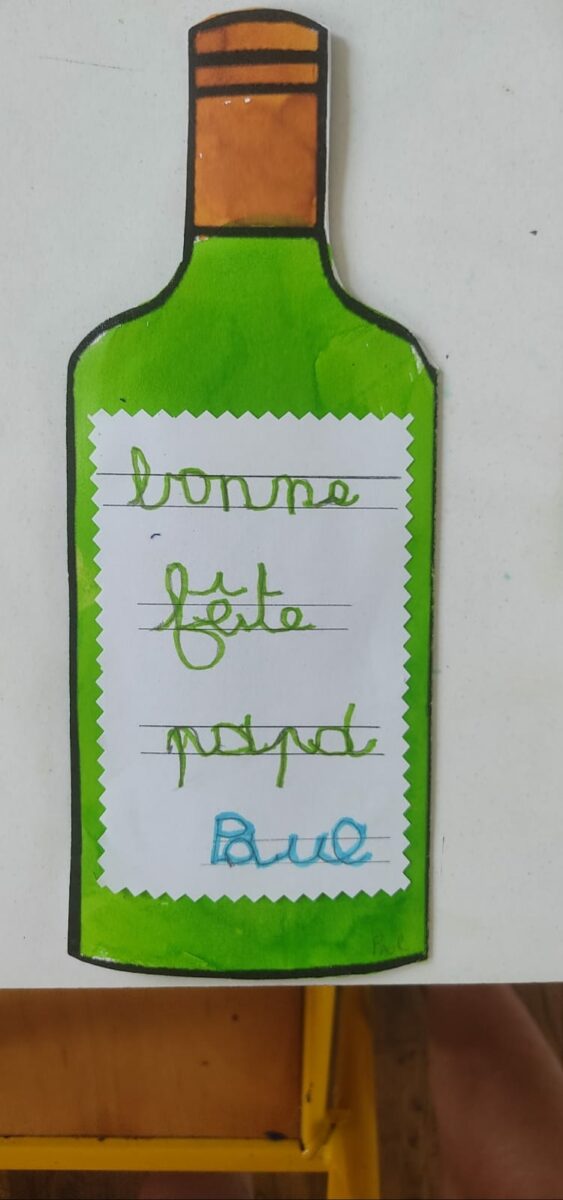 bonne
fête
papa
Paul
Paul